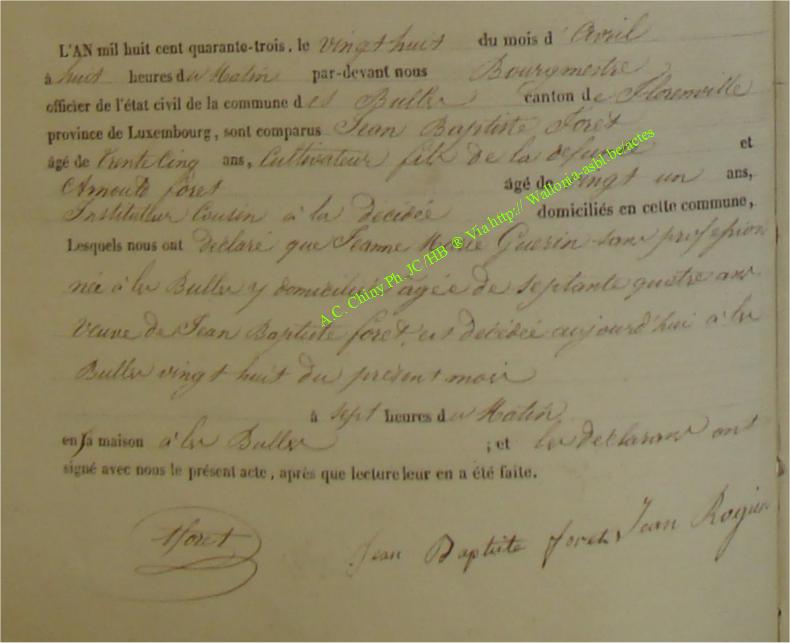 L'AN mil huit cent quarante-trois, le vingt huit du mois d' Avril
à huit heures du Matin par-devant nous Bourgmestre
officier de l'état civil de la commune d es Bulles canton d e Florenville
province de Luxembourg, sont comparus Jean Baptiste Foret
âgé de trente cinq ans, Cultivateur fils de la défunte et
foret âgé de vingt un ans,
Instituteur Cousin à la décédée domiciliés en cette commune,
Lesquels nous ont déclaré que Jeanne Marie Guerin sans profession
née à les Bulles y domiciliée agée de septante quatre ans
Veuve de Jean Baptiste foret, est décédée aujourd'hui à les
Bulles vingt huit du présent mois
à sept heures du Matin
en sa maison à les Bulles ; et les déclarans ont
signé avec nous le présent acte, après que lecture leur en a été faite.
foret Jean Baptiste foret Jean Rogier
A.C. Chiny Ph. JC /HB ® Via http:// Wallonia-asbl.be/actes